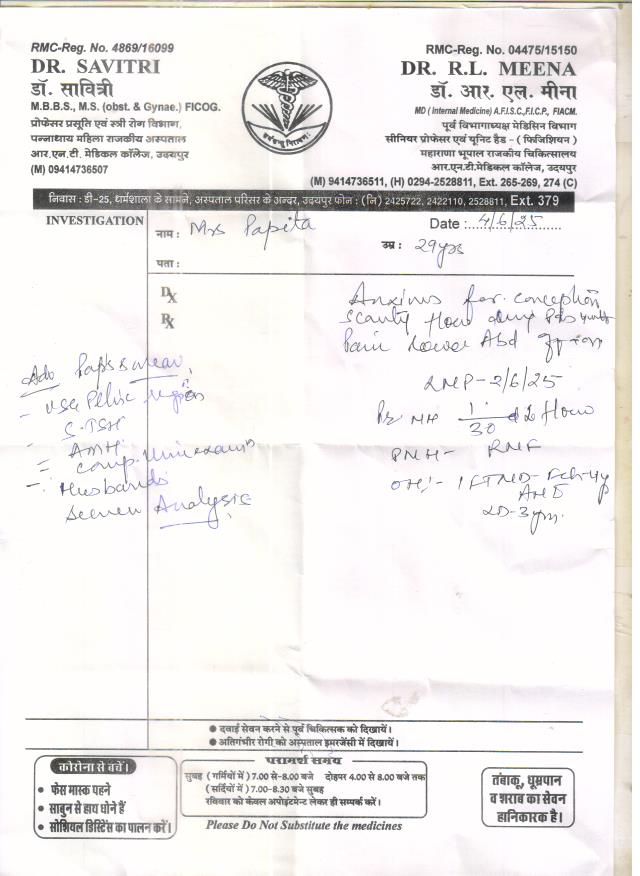 RMC-Reg. No. 4869/16099
DR. SAVITRI
डॉ. सावित्री
M.B.B.S., M.S. (obst. & Gynae.) FICOG.
प्रोफेसर प्रसूति एवं स्त्री रोग विभाग,
पन्नाधाय महिला राजकीय अस्पताल
आर.एन.टी. मेडिकल कॉलेज, उदयपुर
(M) 09414736507
RMC-Reg. No. 04475/15150
DR. R.L. MEENA
डॉ. आर. एल. मीना
MD ( Internal Medicine) A.F.I.S.C.,F.I.C.P., FIACM.
पूर्व विभागाध्यक्ष मेडिसिन विभाग
सीनियर प्रोफेसर एवं यूनिट हैड - ( फिजिशियन )
महाराणा भूपाल राजकीय चिकित्सालय
आर.एन.टी.मेडिकल कॉलेज, उदयपुर
(M) 9414736511, (H) 0294-2528811, Ext. 265-269, 274 (C)
निवास : डी-25, धर्मशाला के सामने, अस्पताल परिसर के अन्दर, उदयपुर फोन : (नि) 2425722, 2422110, 2528811, Ext. 379
INVESTIGATION
नाम : Mrs Papita
Date : 4/6/25
उम्र : 29yrs
पता :
Dx
Rx
Anxious for conception
Scanty flow
Pain Lower Abd
LMP-2/6/25
MH 1/30 flow
PMH-
OH:- 1FTND-
LD-3yrs.
Adv Paps smear
Pelvic
S.TSH
AMH
Husbands
Semen Analysis
● दवाई सेवन करने से पूर्व चिकित्सक को दिखायें।
● अतिगंभीर रोगी को अस्पताल इमरजेंसी में दिखायें।
कोरोना से बचें।
● फेस मास्क पहने
● साबुन से हाथ धोने हैं
● सोशियल डिस्टेंस का पालन करें।
परामर्श समय
सुबह (गर्मियों में ) 7.00 से-8.00 बजे दोहपर 4.00 से 8.00 बजे तक
(सर्दियों में ) 7.00-8.30 बजे सुबह
रविवार को केवल अपोइंटमेन्ट लेकर ही सम्पर्क करें।
Please Do Not Substitute the medicines
तंबाकू, धूम्रपान
व शराब का सेवन
हानिकारक है।